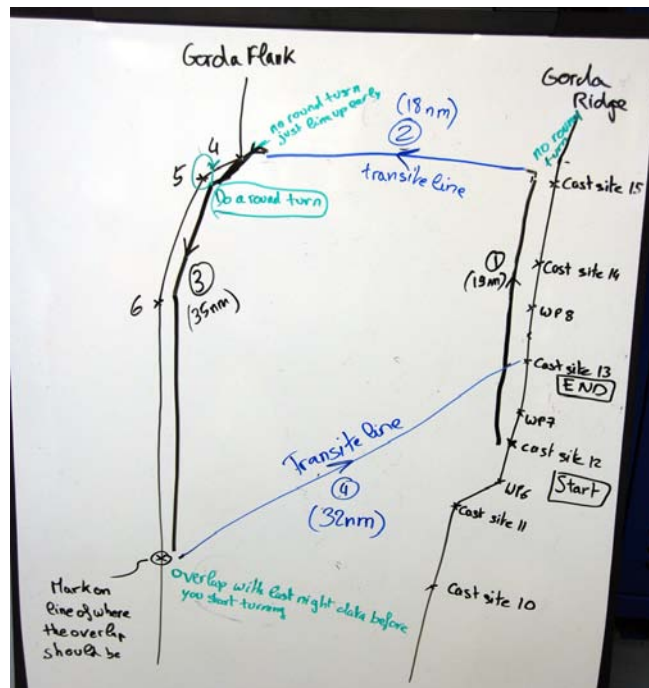 Gorda Flank
Gorda
Ridge
no round turn
just line up early
(18nm)
②
transite line
no round
turn
4
5
Do a round turn
Cast site 15
①
(19nm)
Cast site 14
③
(35nm)
6
WP8
Cast site 13
END
WP7
Cast site 12
Transite line
④
(32nm)
WP6
Start
Cast site 11
Mark on
line of where
the overlap
should be
overlap with last night data before
you start turning
Cast site 10